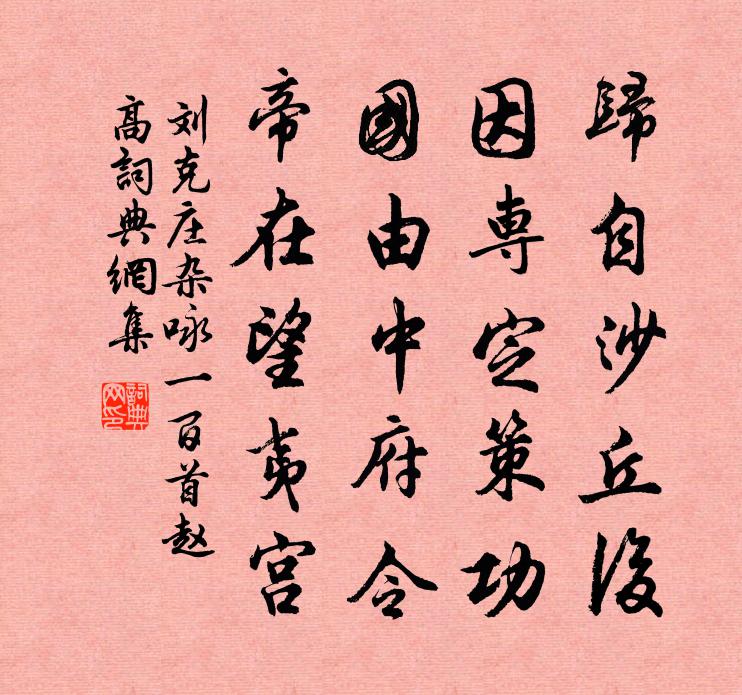 歸自沙丘後
因専定策功
國由中府令
帝在望夷宫
刘克庄杂咏一百首赵
高詞典網集
詞典网印